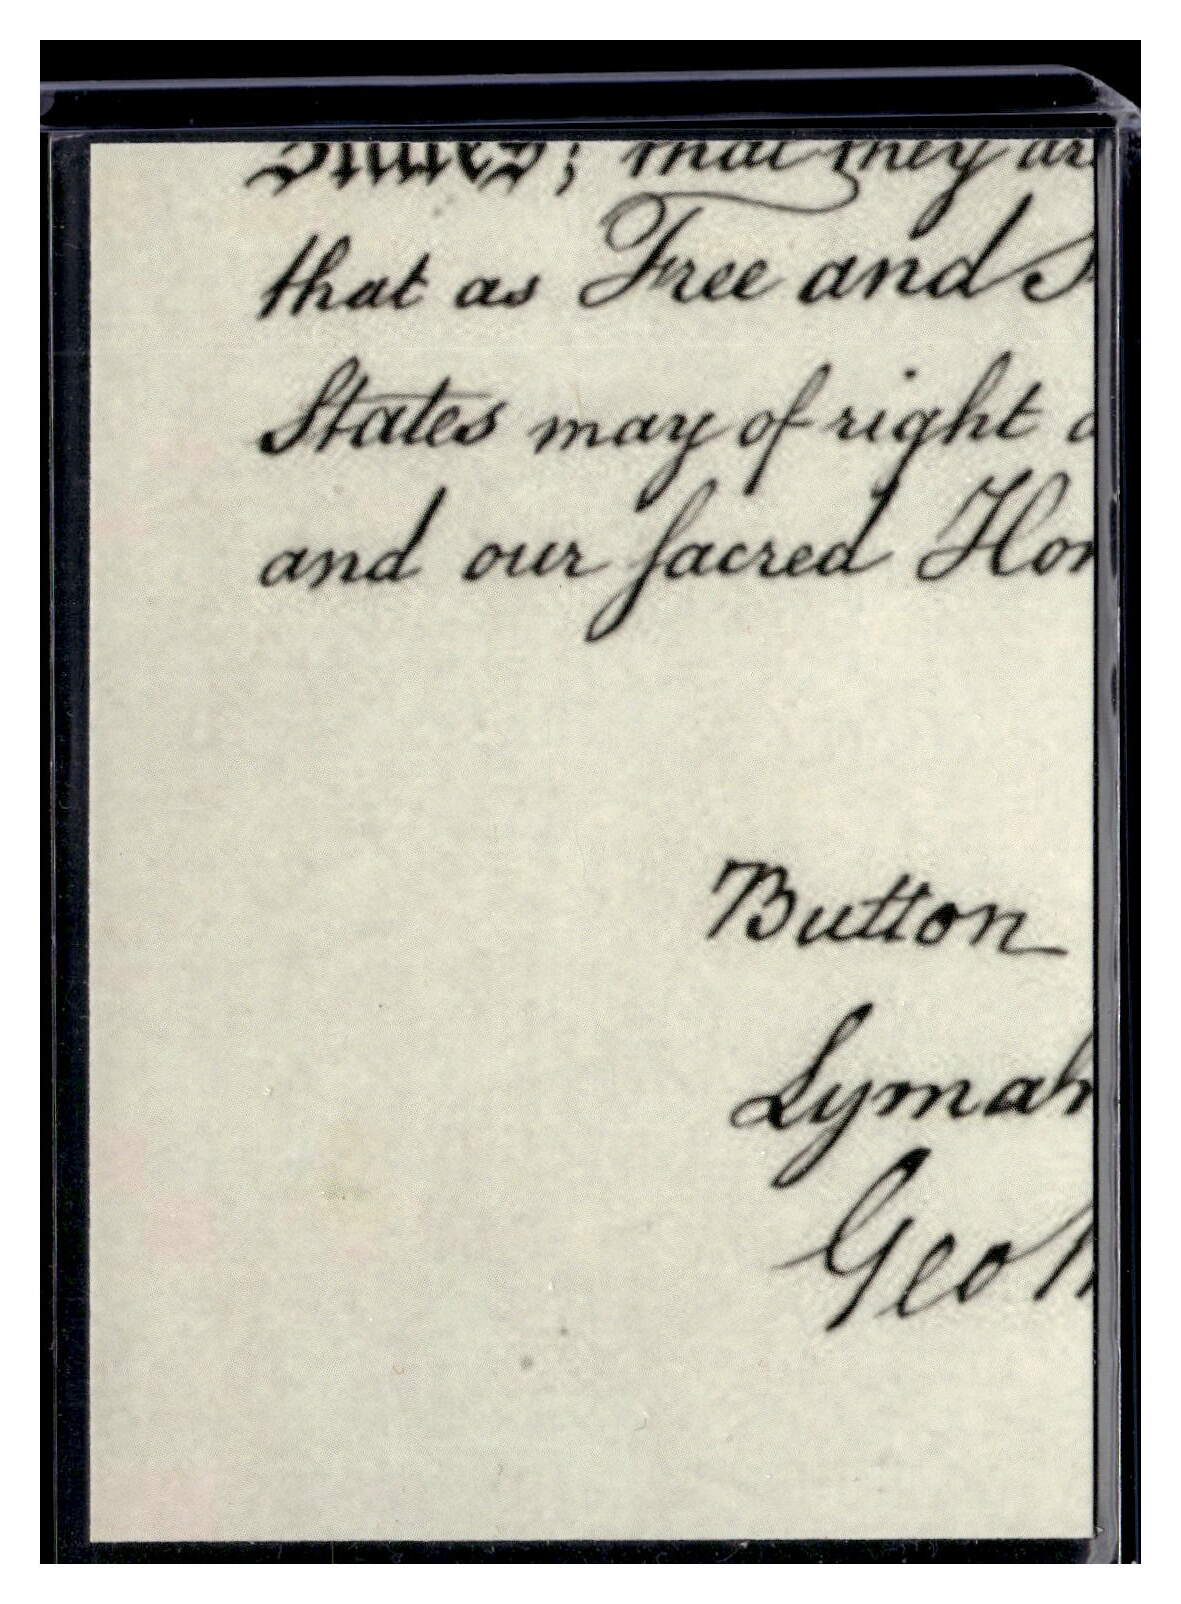 States; that they ar
that as Free and I
States may of right o
and our sacred Hon
Button
Lyman
Geo W